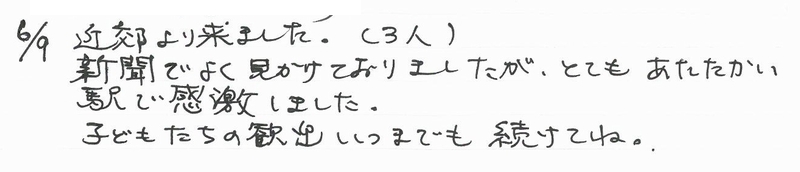 6/9 近郊より来ました。(3人)
新聞でよく見かけておりましたが、とても あたたかい
駅で感激しました。
子どもたちの歓迎 いつまでも 続けてね。